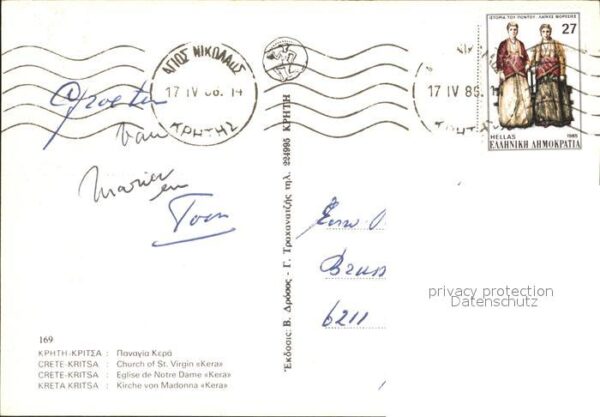 ΑΓΙΟΣ ΝΙΚΟΛΑΟΣ
17 IV 86. 14
ΚΡΗΤΗΣ
17 IV 86. 1
ΙΣΤΟΡΙΑ ΤΟΥ ΠΟΝΤΟΥ - ΛΑΪΚΕΣ ΦΟΡΕΣΙΕΣ
27
HELLAS 1985
ΕΛΛΗΝΙΚΗ ΔΗΜΟΚΡΑΤΙΑ
Groeten
van
Marian en
Toon
6211
privacy protection
Datenschutz
Έκδοσις: Β. Δρόσος - Γ. Τραχανατζής τηλ. 224995 ΚΡΗΤΗ
169
ΚΡΗΤΗ-ΚΡΙΤΣΑ : Παναγία Κερά
CRETE-KRITSA : Church of St. Virgin «Kera»
CRETE-KRITSA : Eglise de Notre Dame «Kera»
KRETA KRITSA : Kirche von Madonna «Kera»